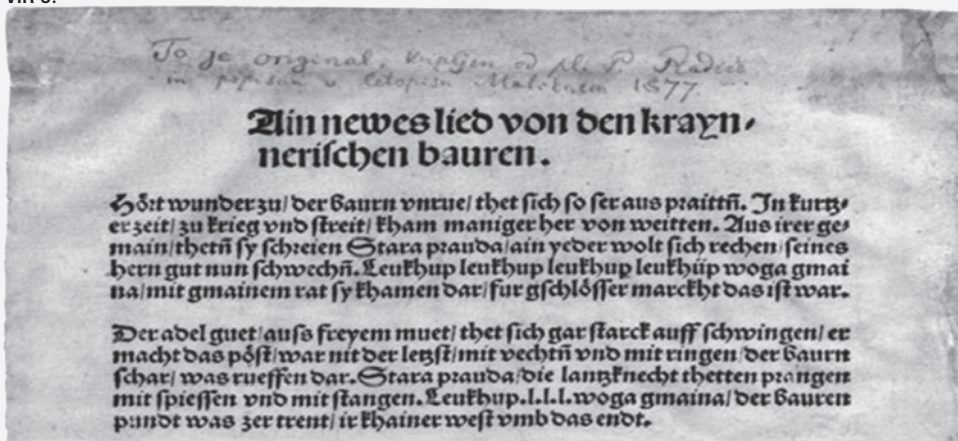 To je original, kupljen od pl. P. Radics
in popisan v letopisu Matičnem 1877.
Ain newes lied von den krayn⸗
nerischen bauren.
Hört wunder zu/ der Baurn vnrue/ thet sich so ser aus praittn̄. In kurtz⸗
er zeit/ zu krieg vnd streit/ kham maniger her von weitten. Aus irer ge⸗
main/ thetn̄ sy schreien Stara prauda/ ain yeder wolt sich rechen/ seines
hern gut nun schwechn̄. Leukhup leukhup leukhup leukhüp woga gmai
na/ mit gmainem rat sy khamen dar/ fur gschlösser marckht das ist war.
Der adel guet/ auss freyem muet/ thet sich gar starck auff schwingen/ er
macht das pöst/ war nit der letzst/ mit vechtn̄ vnd mit ringen/ der Baurn
schar/ was rueffen dar. Stara prauda/ die lantzknecht thetten prangen
mit spiessen vnd mit stangen. Leukhup.l.l.l.woga gmaina/ der Bauren
pundt was zer trent/ ir khainer west vmb das endt.